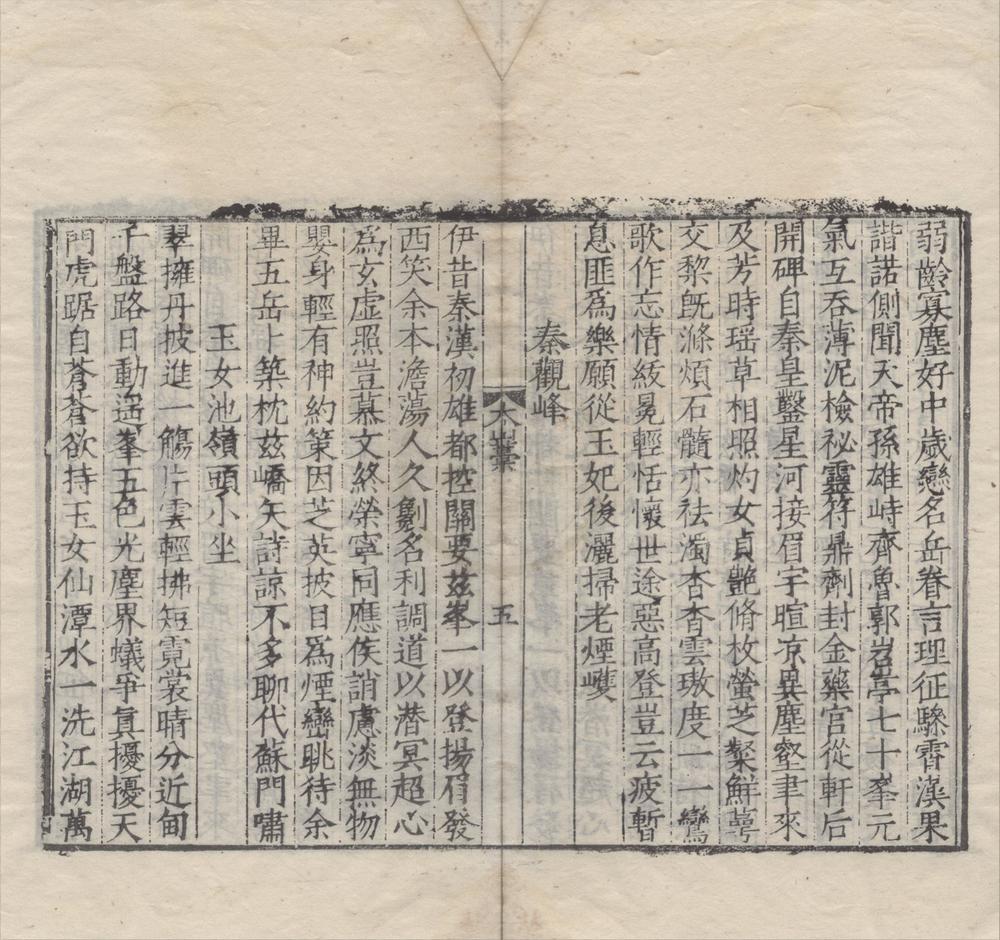 弱齡寡塵好中歲戀名岳眷言理征驂霄漢果
諧諾側聞天帝孫雄峙齊魯郭岧亭七十峯元
氣互吞薄泥檢祕靈符鼎劑封金藥宮從軒后
開碑自秦皇鑿星河接眉宇暄凉異塵壑聿來
及芳時瑶草相照灼女貞艶脩枚螢芝粲鮮蕚
交黎旣滌煩石髓亦祛濁杳杳雲璈度一一鸞
歌作忘情紱冕輕恬懷世途惡高登豈云疲暫
息匪爲樂願從玉妃後灑掃老煙㠢
秦觀峰
木藁
五
伊昔秦漢初雄都控關要玆峯一以登揚眉發
西笑余本澹蕩人久劖名利調道以潜冥超心
爲玄虛照豈慕文終榮寧同應侯誚慮淡無物
嬰身輕有神約策因芝英披目爲煙巒眺待余
畢五岳卜築枕玆嶠矢詩諒不多聊代蘇門嘯
玉女池嶺頭小坐
翠擁丹披進一觴片雲輕拂短霓裳晴分近甸
千盤路日動遥峯五色光塵界蟻爭眞擾擾天
門虎踞自蒼蒼欲持玉女仙潭水一洗江湖萬